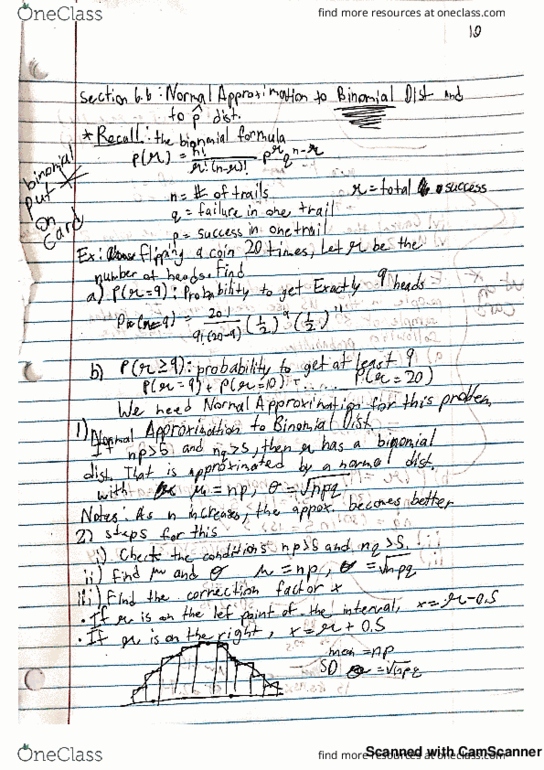 OneClass
find more resources at oneclass.com
10
Section 6.6: Normal Approximation to Binomial Dist and
to p̂ dist.
* Recall: the binomial formula
P(r) = n!/r!(n-r)! · p^r q^n-r
binomial
put
on
card
n = # of trails r = total success
q = failure in one trail
p = success in one trail
Ex: flipping a coin 20 times, Let r be the
number of heads. Find
a) P(r=9): Probability to get Exactly 9 heads
P(r=9) = 20!/9!(20-9) (1/2)^9 (1/2)^11
b) P(r≥9): probability to get at least 9
P(r=9) + P(r=10) + ...... P(r=20)
We need Normal Approximation for this problem
1) Normal Approximation to Binomial Dist
If np>5 and nq>5, then r has a binomial
dist. That is approximated by a normal dist.
with μ = np, σ = √npq
Notes: As n increases, the appox. becomes better
2) steps for this
i) Check the conditions np>5 and nq>5.
ii) find μ and σ μ = np, σ = √npq
iii) Find the correction factor x
• If r is on the left point of the interval, x = r - 0.5
• If r is on the right, x = r + 0.5
mean = np
SD σ = √npq
OneClass
find more resources at oneclass.com
Scanned with CamScanner